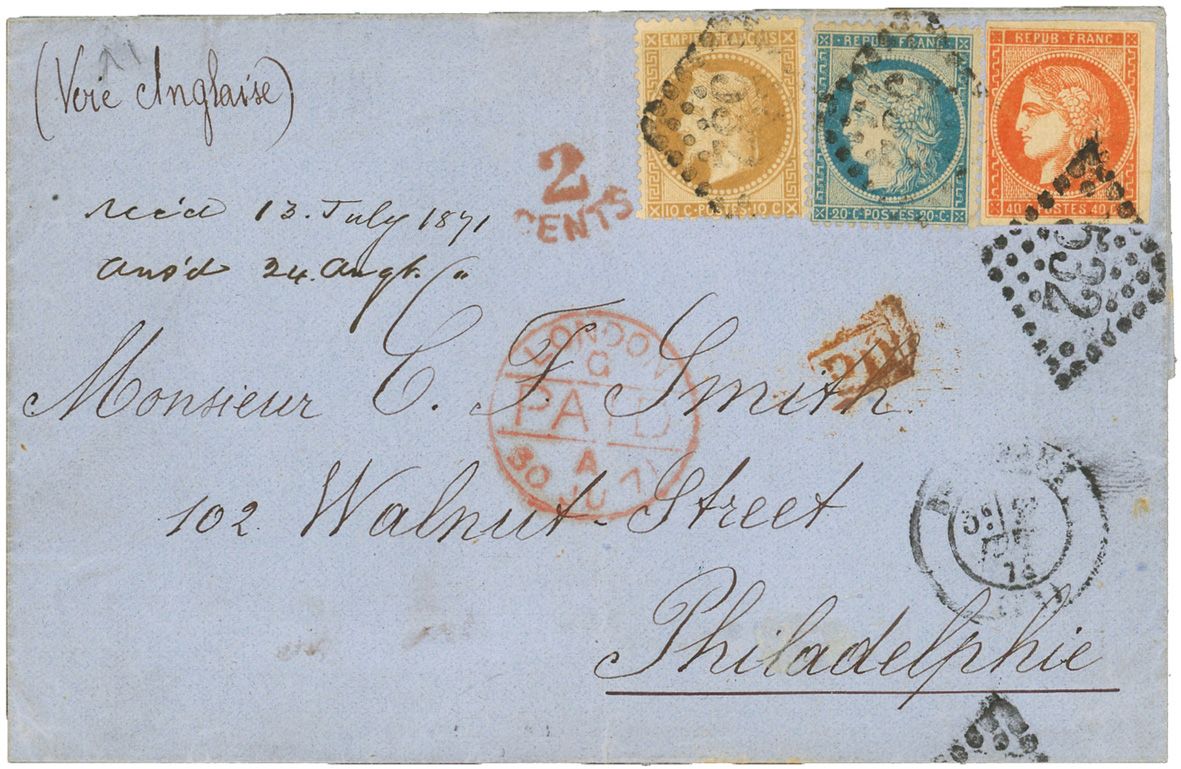 (Voie Anglaise)
EMPIRE FRANÇAIS
10 C · POSTES · 10 C
REPUB · FRANC
20 · C · POSTES · 20 · C
REPUB · FRANC
40 C POSTES 40 C
532
2
CENTS
rec'd 13. July 1871
ans'd 24. Augt.
LONDON
G
PAID
A
30 JU 71
P.D.
Monsieur C. F. Smith
102 Walnut-Street
Philadelphie